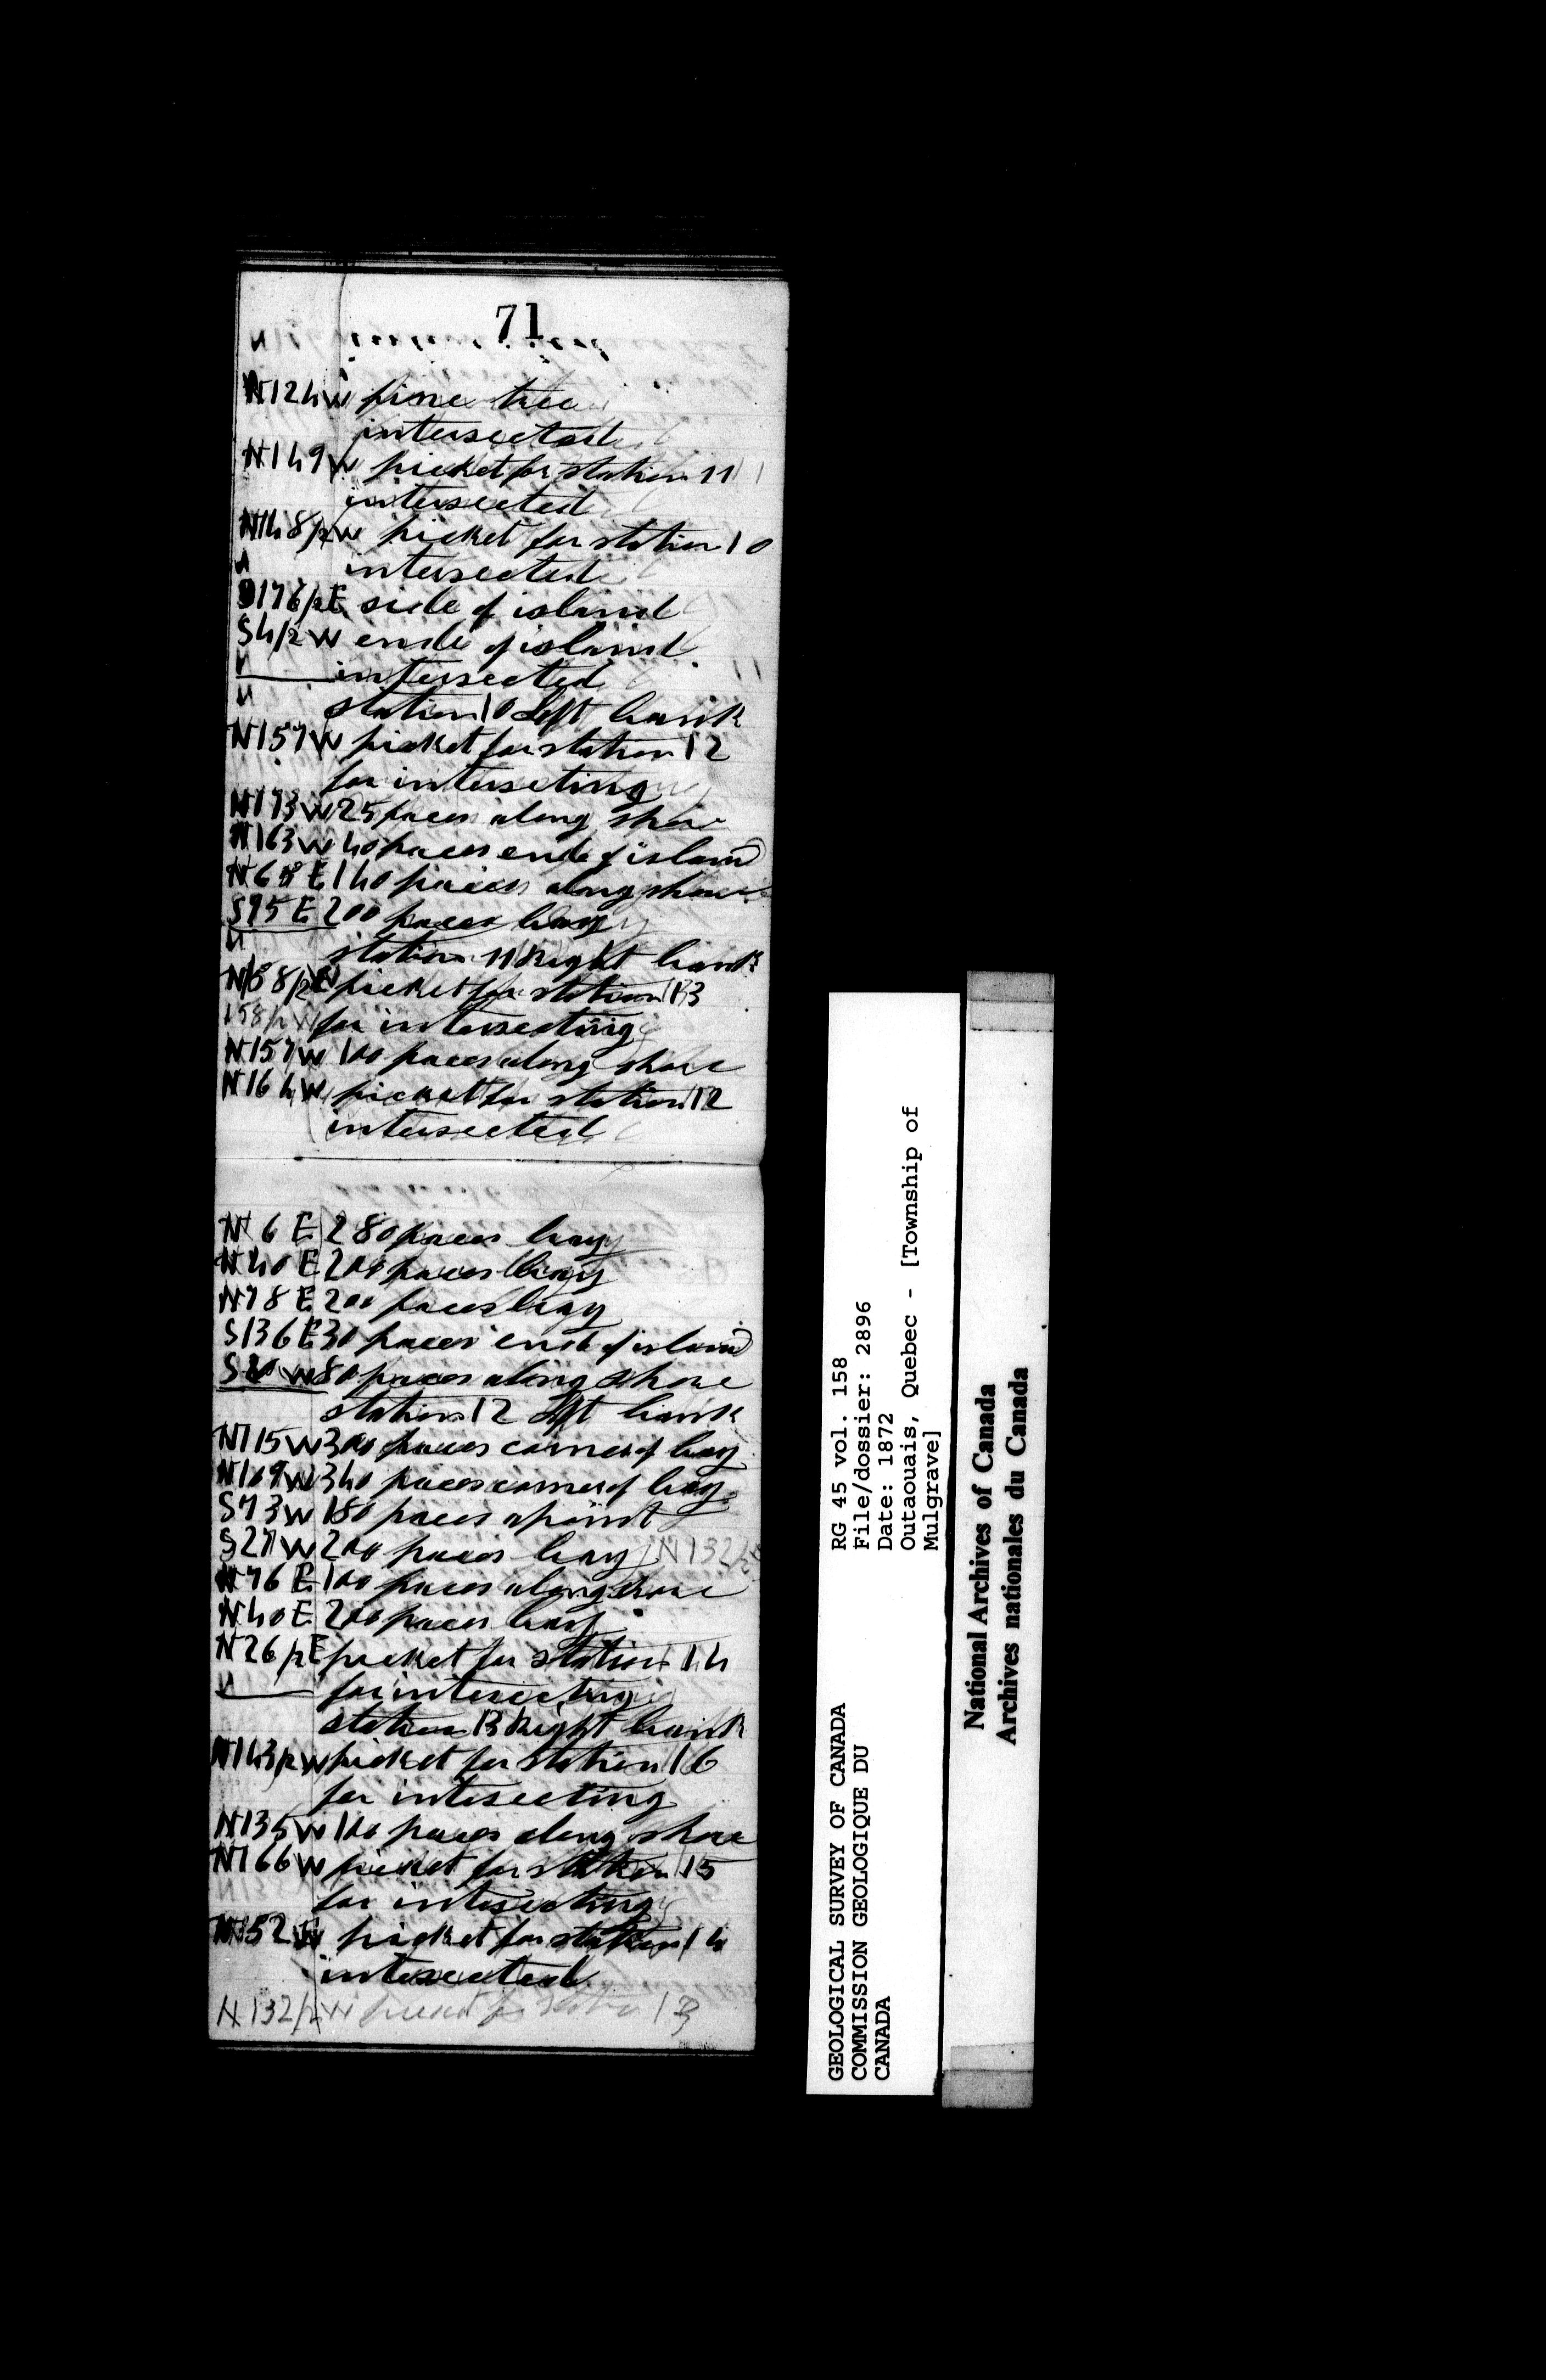 71
N124W pine tree
intersected
N149W picket for station 11
intersected
N148/2W picket for station 10
intersected
S176/2E side of island
S4/2W ende of island
intersected
station 10 Left bank
N157W picket for station 12
for interseting
N173W 25 paces along shore
N163W 40 paces ende of island
E 140 paces along shore
S75E 200 paces bay
station 11 Right bank
picket for station 13
158/2W for intersecting
N157W 100 paces along shore
N164W picket for station 12
intersected
N6E 280 paces bay
N40E 200 paces bay
N78E 200 paces bay
S136E 30 paces ende of island
W 80 paces along shore
station 12 Left bank
N115W 300 paces corner of bay
N109W 340 paces corner of bay
S73W 180 paces apoint
S27W 200 paces bay N132/2
N76E 100 paces along shore
N40E 200 paces bay
N26/2E picket for station 14
for intersecting
station 13 Right bank
N143/2W picket for station 16
for intersecting
N135W 100 paces along shore
N166W picket for station 15
for intersecting
N52 picket for station 14
intersected
N132/2W picket for station 13
RG 45 vol. 158
File/dossier: 2896
Date: 1872
Outaouais, Quebec - [Township of
Mulgrave]
GEOLOGICAL SURVEY OF CANADA
COMMISSION GEOLOGIQUE DU
CANADA
National Archives of Canada
Archives nationales du Canada